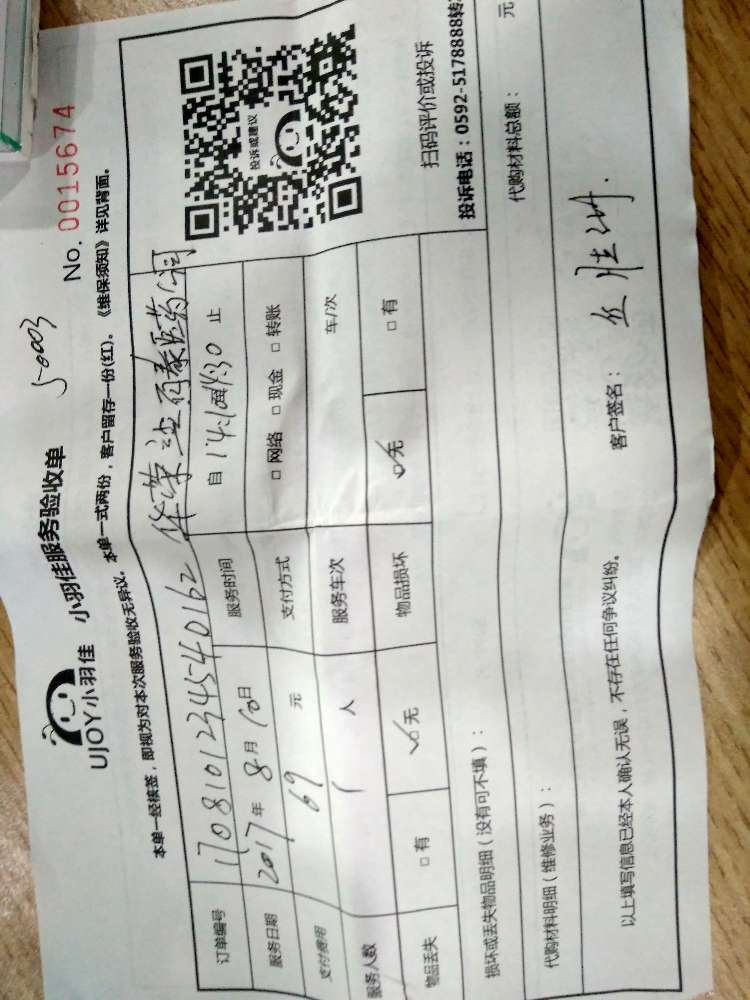 UJOY小羽佳 小羽佳服务验收单
No. 0015674
本单一经核签，即视为对本次服务验收无异议。本单一式两份，客户留存一份(红)。《维保须知》详见背面。
订单编号 17081012345540162
服务日期 2017年8月10日 服务时间 自 止
支付费用 69 元 支付方式 □ 网络 □ 现金 □ 转账
服务人数 1 人 服务车次 车/次
物品丢失 □ 有 ☑ 无 物品损坏 ☑ 无 □ 有
投诉或建议
扫码评价或投诉
投诉电话：0592-5178888转
损坏或丢失物品明细（没有可不填）：
代购材料明细（维修业务）： 代购材料总额： 元
以上填写信息已经本人确认无误，不存在任何争议纠纷。
客户签名：